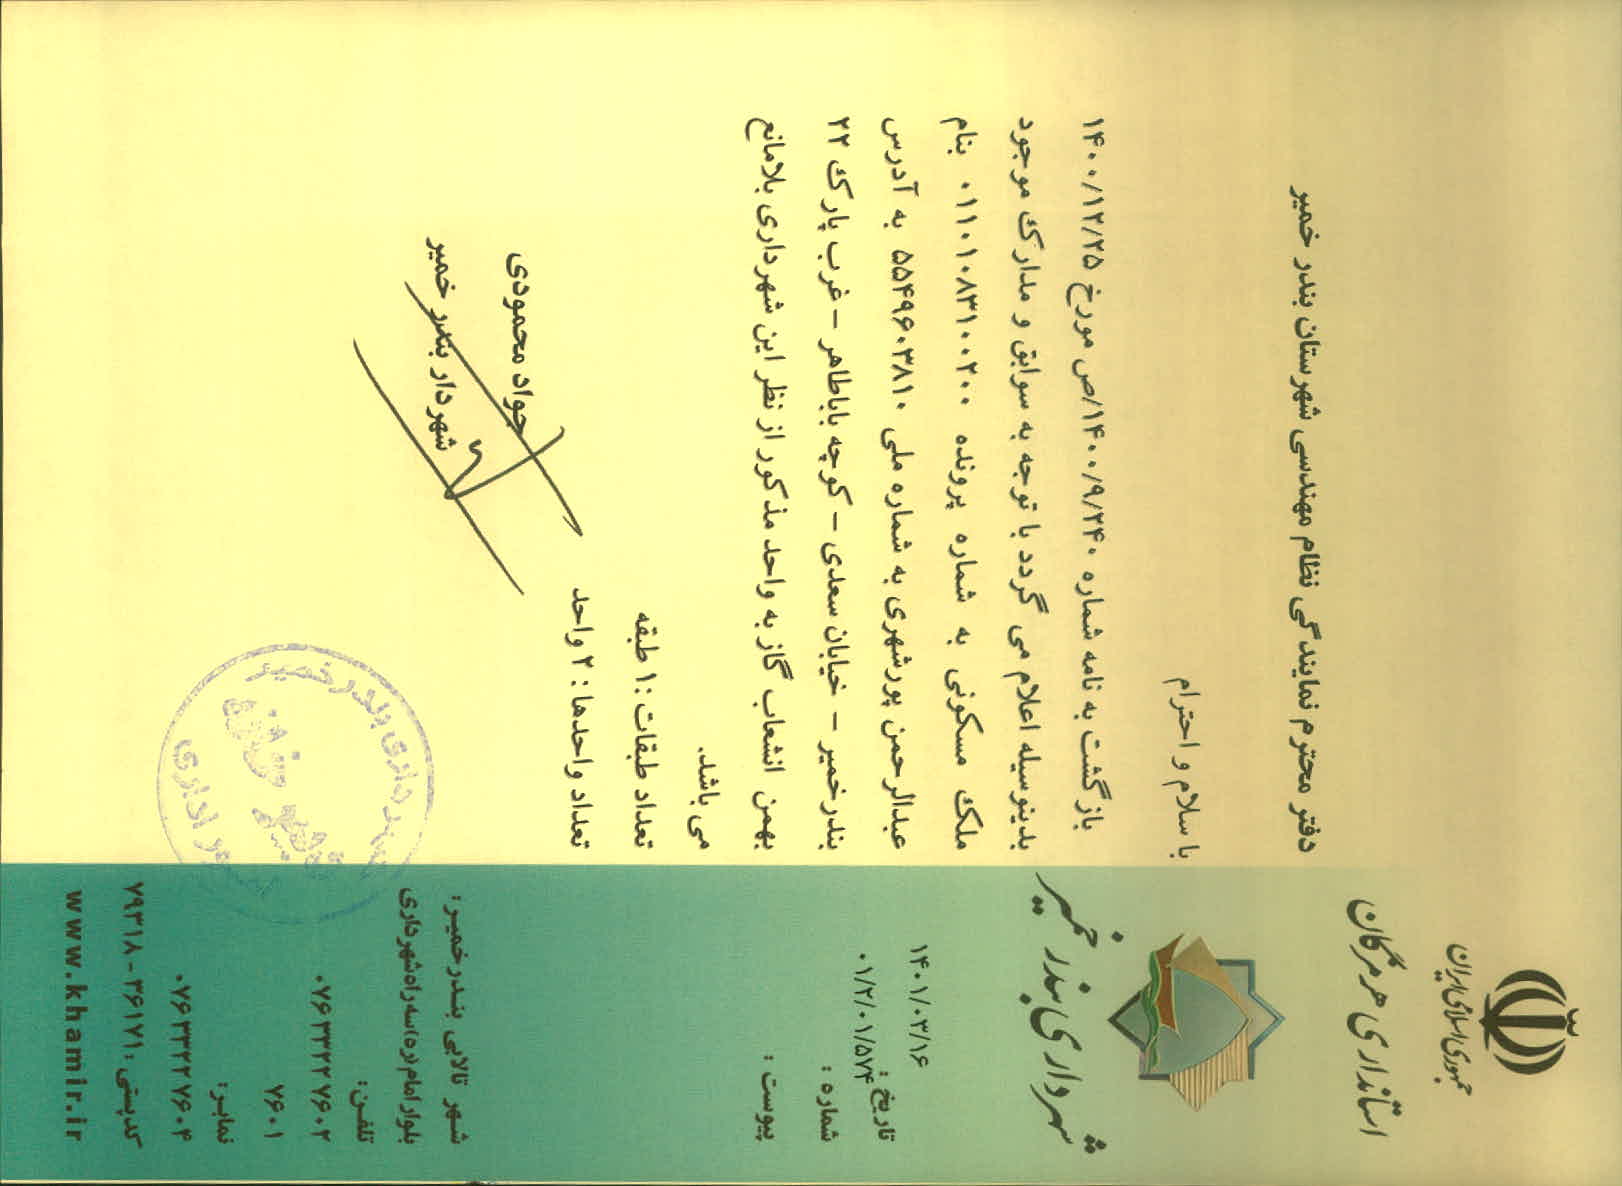 جمهوری اسلامی ایران
استانداری هرمزگان
شهرداری بندر خمیر
تاریخ : ۱۴۰۱/۰۳/۱۶
شماره : ۰۱/۲/۰۱/۵۷۴
پیوست :
دفتر محترم نمایندگی نظام مهندسی شهرستان بندر خمیر
با سلام و احترام
بازگشت به نامه شماره ۱۴۰۰/۹/۳۴۰/ص مورخ ۱۴۰۰/۱۲/۲۵
بدینوسیله اعلام می گردد با توجه به سوابق و مدارک موجود
ملک مسکونی به شماره پرونده ۰۱۱۰۱۰۸۳۱۰۰۲۰۰ بنام
عبدالرحمن پورشهری به شماره ملی ۵۵۴۹۶۰۳۸۱۰ به آدرس
بندرخمیر - خیابان سعدی - کوچه باباطاهر - غرب پارک ۲۲
بهمن انشعاب گاز به واحد مذکور از نظر این شهرداری بلامانع
می باشد.
تعداد طبقات :۱ طبقه
تعداد واحدها : ۲ واحد
جواد محمودی
شهردار بندر خمیر
شهرداری بندر خمیر
امور اداری
شهر تالابی بندرخمیر:
بلوار امام ره اسه راه شهرداری
تلفن:
۰۷۶۳۳۲۲۷۶۰۲
۷۶۰۱
نمابر:
۰۷۶۳۳۲۲۷۶۰۴
کدپستی: ۳۶۱۷۱ - ۷۹۳۱۸
www.khamir.ir